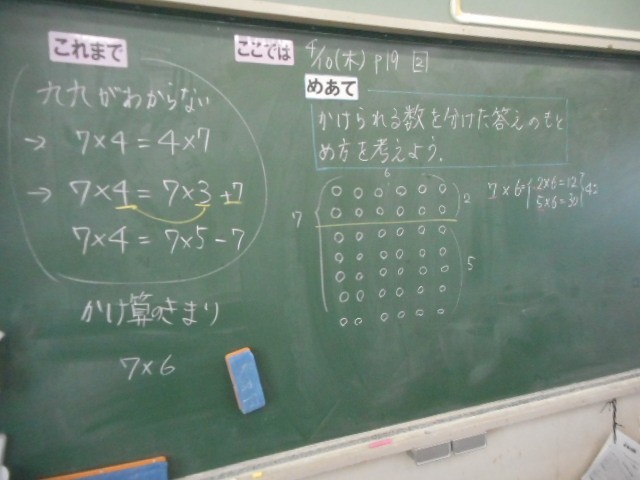 これまで
九九がわからない
→ 7×4=4×7
→ 7×4=7×3+7
7×4=7×5-7
かけ算のきまり
7×6
ここでは
4/10(木) p19 2
めあて
かけられる数を分けた答えのもと
め方を考えよう。
6
7
2
5
7×6={2×6=12
5×6=30}42